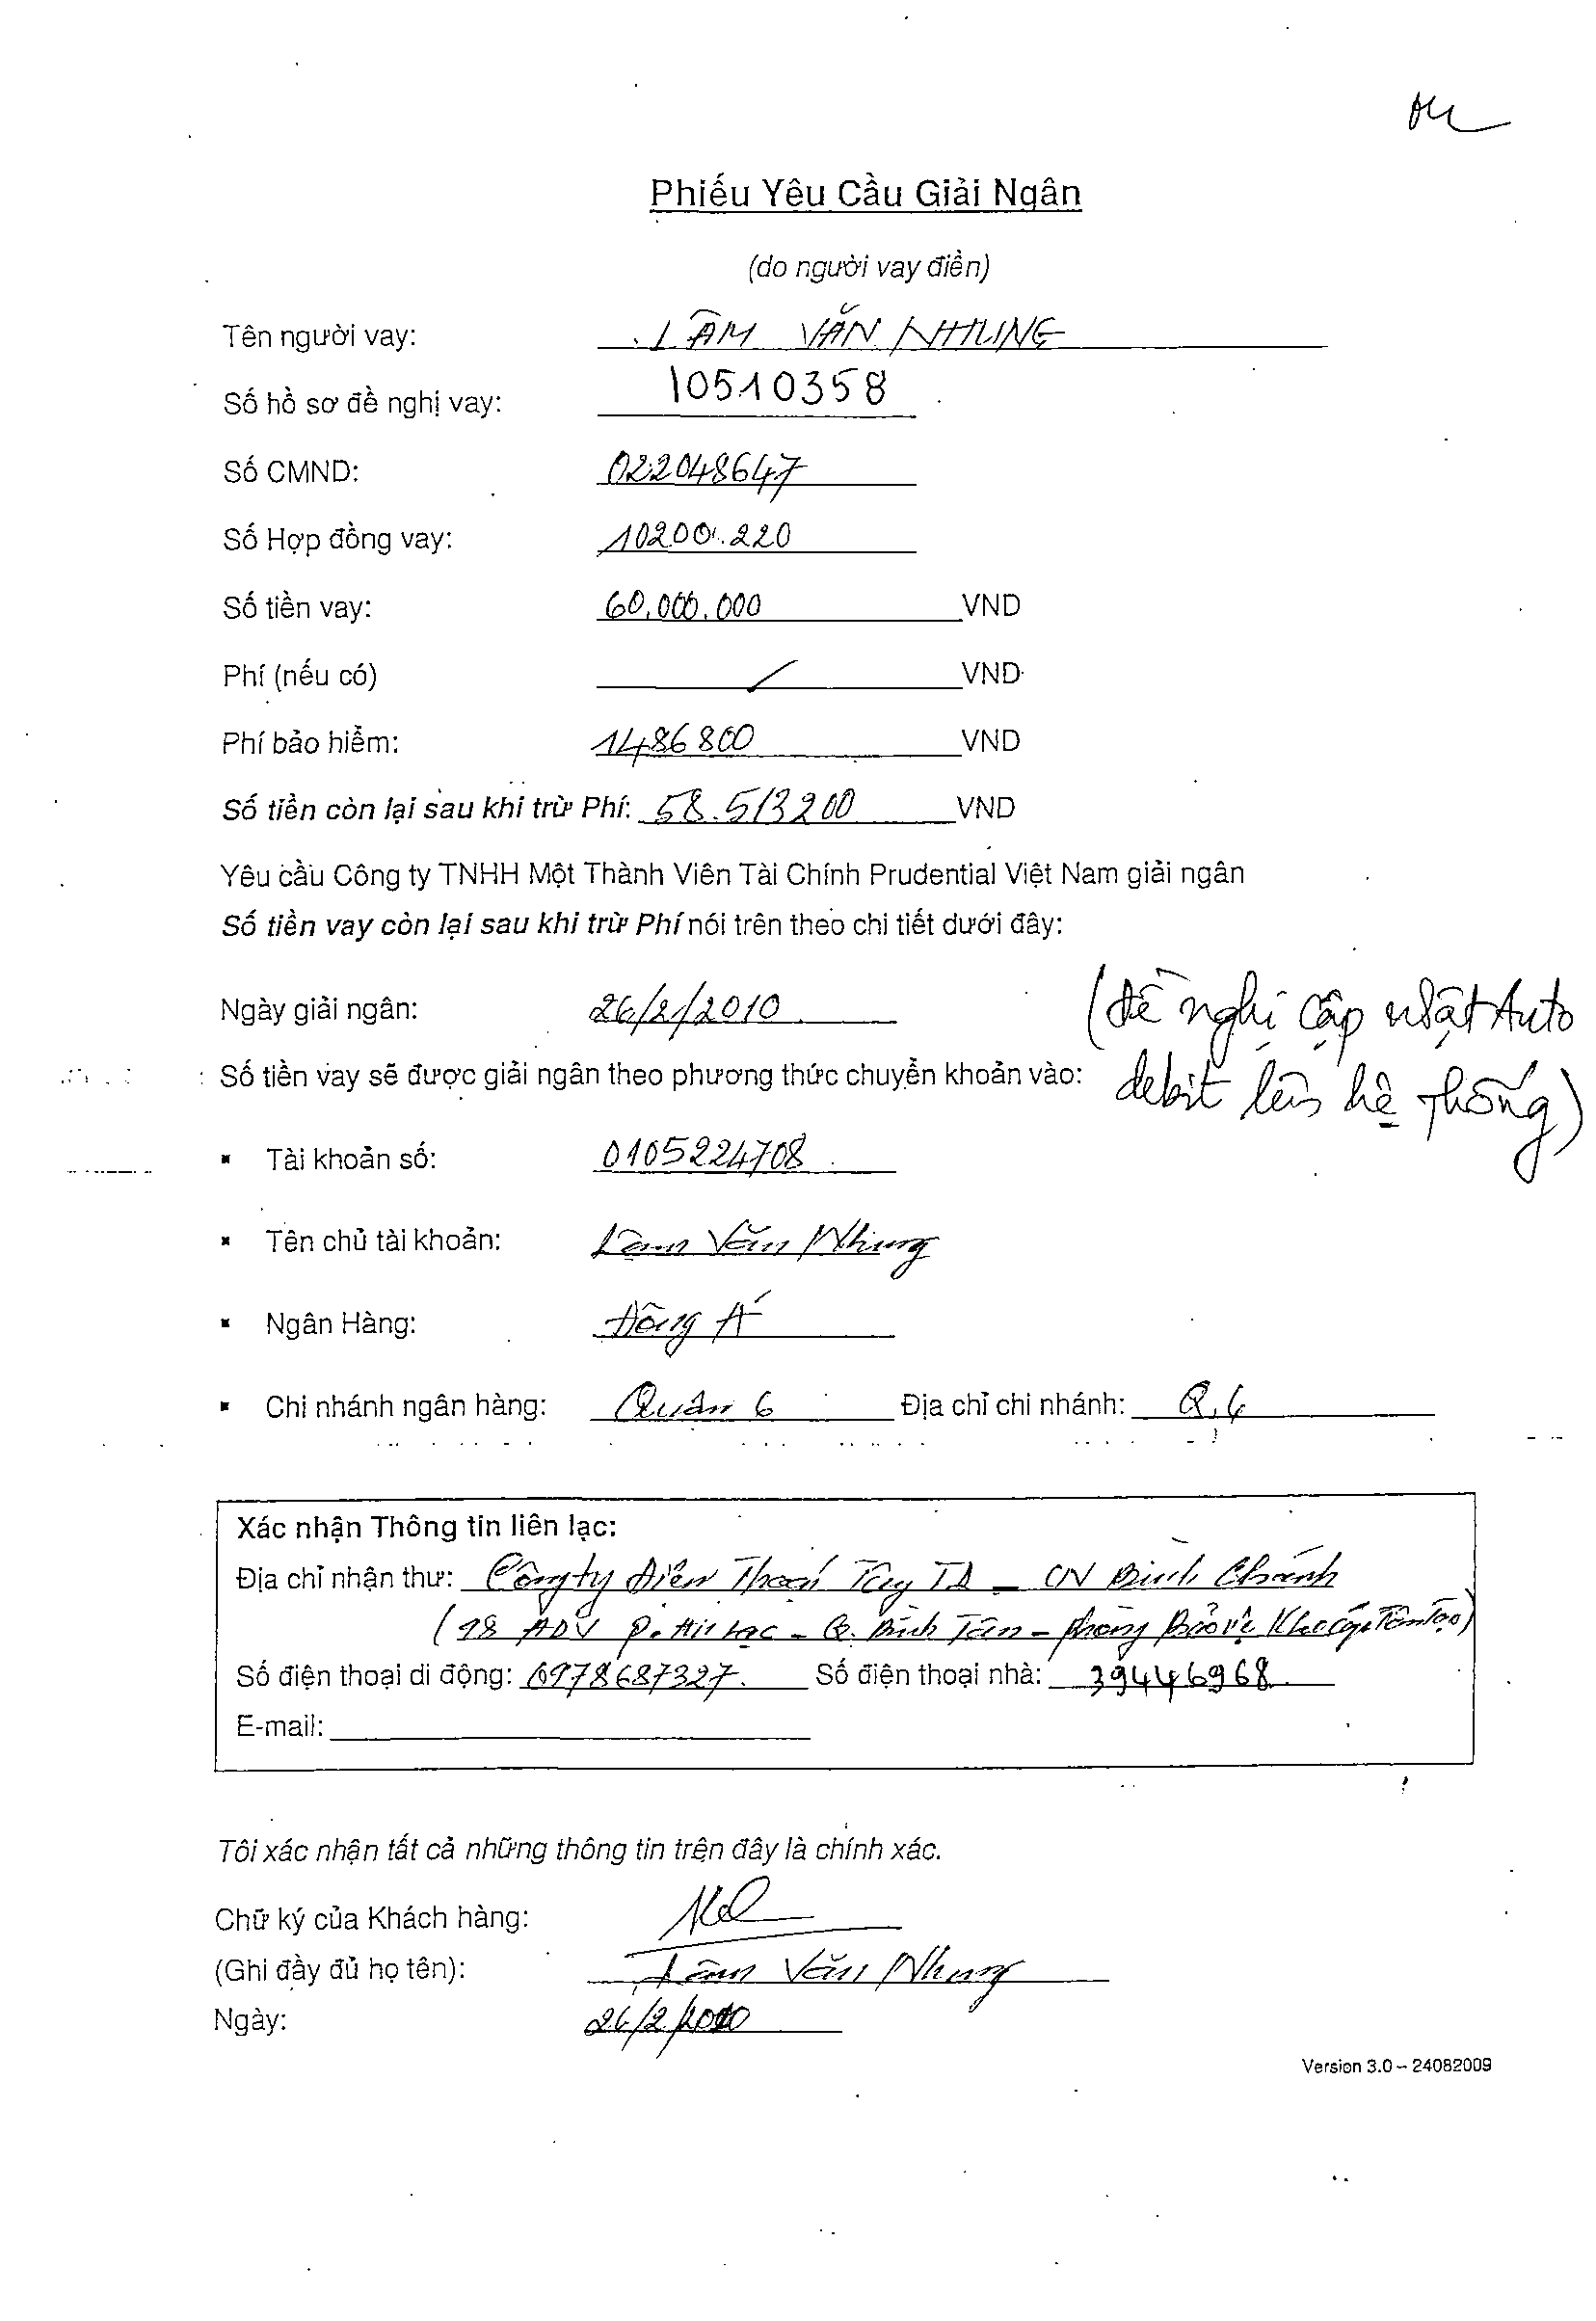 Phiếu Yêu Cầu Giải Ngân
(do người vay điền)
Tên người vay: LÂM VĂN NHUNG
Số hồ sơ đề nghị vay: 10510358
Số CMND: 022048647
Số Hợp đồng vay: 10200.220
Số tiền vay: 60.000.000 VND
Phí (nếu có) VND
Phí bảo hiểm: 1486800 VND
Số tiền còn lại sau khi trừ Phí: 58.513200 VND
Yêu cầu Công ty TNHH Một Thành Viên Tài Chính Prudential Việt Nam giải ngân
Số tiền vay còn lại sau khi trừ Phí nói trên theo chi tiết dưới đây:
Ngày giải ngân: 26/2/2010 (Đề nghị cập nhật Auto
Số tiền vay sẽ được giải ngân theo phương thức chuyển khoản vào: debit lên hệ thống)
▪ Tài khoản số: 0105224708
▪ Tên chủ tài khoản: Lâm Văn Nhung
▪ Ngân Hàng: Đông Á
▪ Chi nhánh ngân hàng: Quận 6 Địa chỉ chi nhánh: Q.6
Xác nhận Thông tin liên lạc:
Địa chỉ nhận thư: Công ty Điện Thoại Tây TP – CN Bình Chánh
(18 ADV P. An Lạc – Q. Bình Tân – Phòng Bảo Vệ Tân Tạo)
Số điện thoại di động: 0978687327. Số điện thoại nhà: 39446968
E-mail:
Tôi xác nhận tất cả những thông tin trên đây là chính xác.
Chữ ký của Khách hàng:
(Ghi đầy đủ họ tên): Lâm Văn Nhung
Ngày: 26/2/2010
Version 3.0 – 24082009